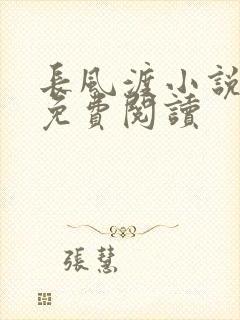 長風渡小說
免費閱讀
張慧